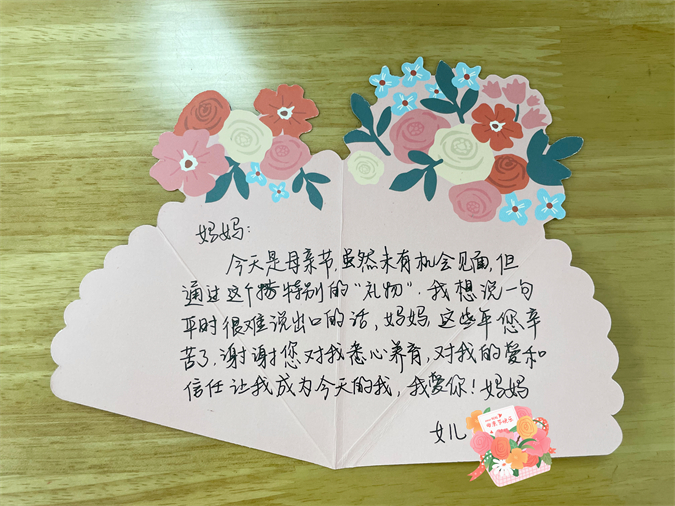 妈妈：
今天是母亲节,虽然未有机会见面,但
通过这个特别的“礼物”.我想说一句
平时很难说出口的话,妈妈,这些年您辛
苦了,谢谢您对我悉心养育,对我的爱和
信任让我成为今天的我,我爱你!妈妈
女儿